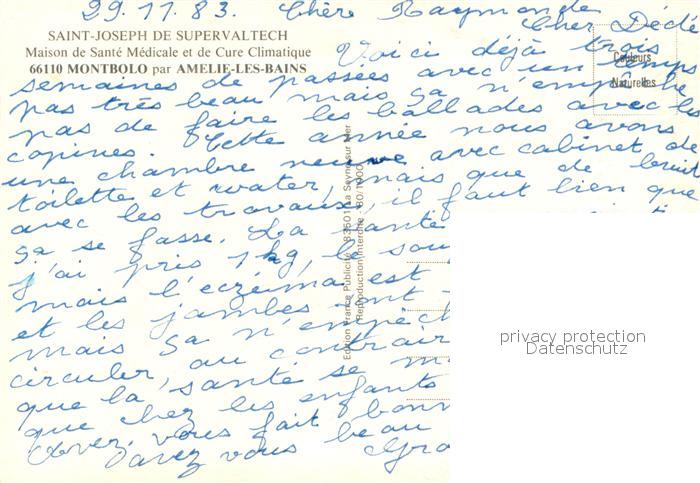 29.11.83. Chère Raymonde
Cher Dédé
SAINT-JOSEPH DE SUPERVALTECH
Maison de Santé Médicale et de Cure Climatique
66110 MONTBOLO par AMELIE-LES-BAINS
Couleurs
Naturelles
Voici déjà trois
semaines de passées avec un temps
pas très beau mais ça n'empêche
pas de faire les ballades avec les
copines. Cette année nous avons
une chambre neuve avec cabinet de
toilette et water, mais que de bruit
avec les travaux, il faut bien que
ça se fasse. La santé
j'ai pris 1 kg, le
mais l'eczéma est
et les jambes sont
mais ça n'empêch
circuler, au contrair
que la santé se m
que chez les enfants
Avez vous fait bonn
Avez vous beau
Edition France Publicité - 83501 La Seyne-sur-Mer
Reproduction Interdite - 80/1000
privacy protection
Datenschutz